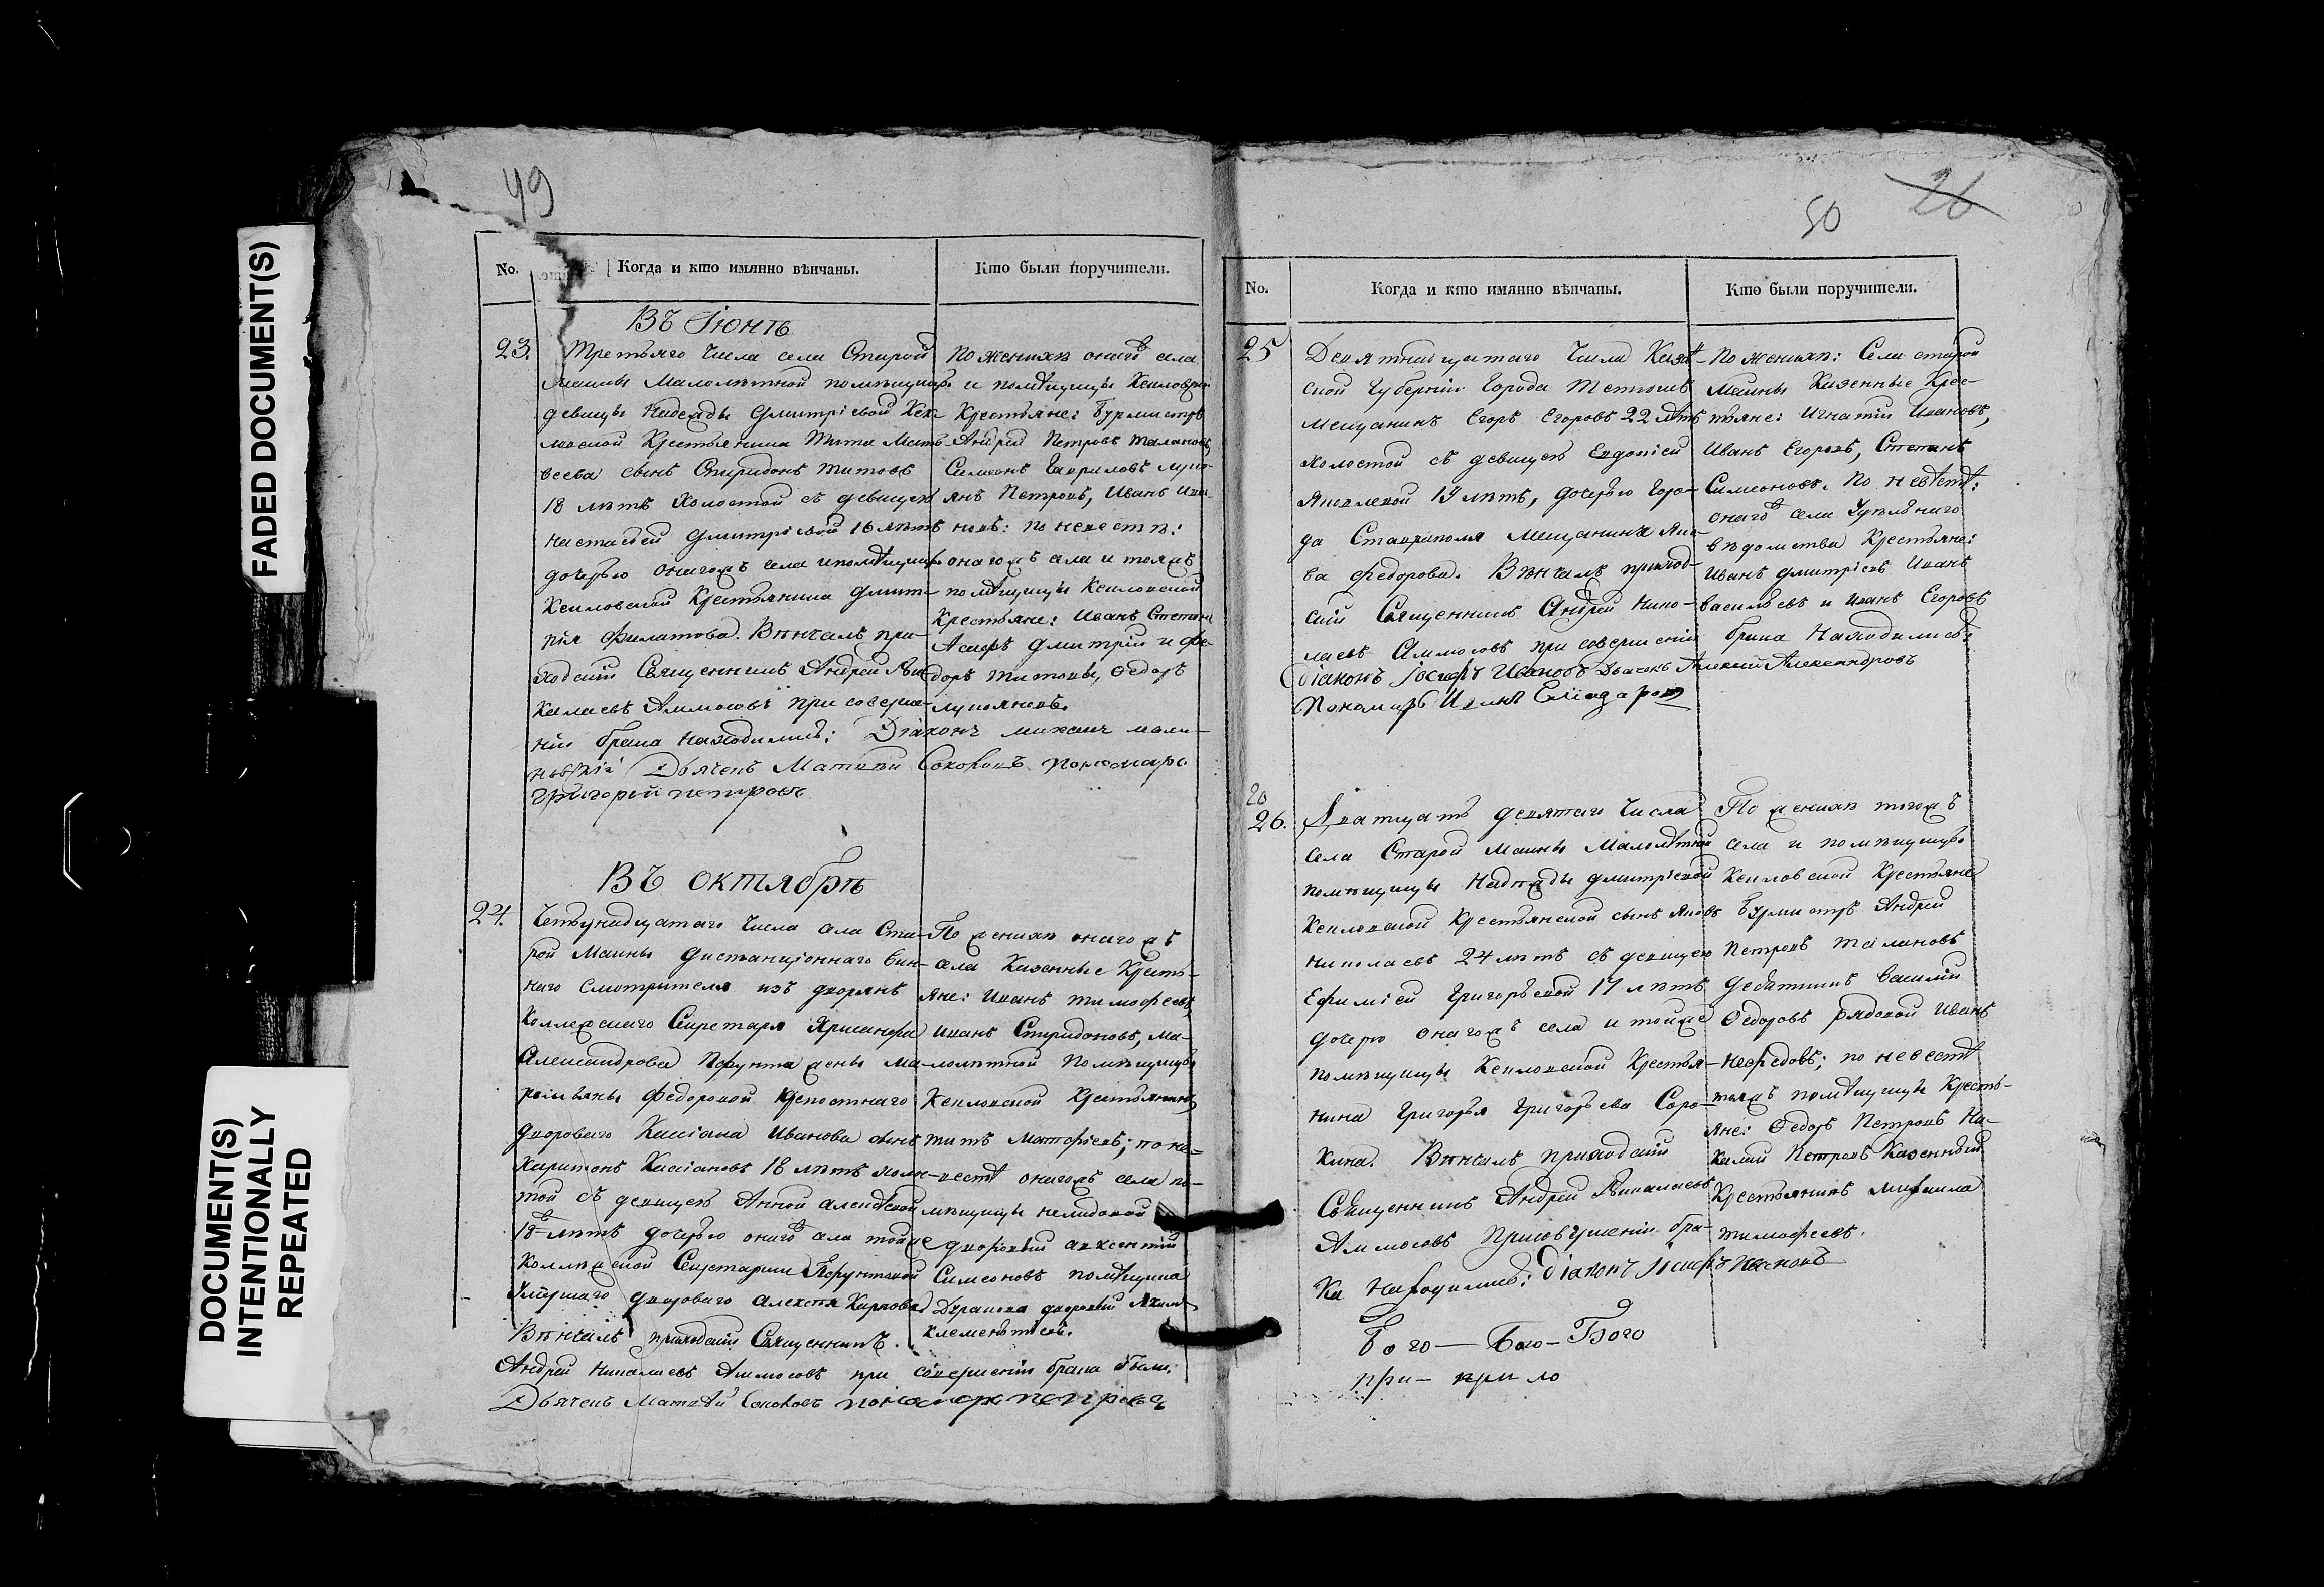 FADED DOCUMENT(S)
DOCUMENT(S)
INTENTIONALLY
REPEATED
49
No.
Когда и кто имянно вѣнчаны.
Кто были поручители.
Въ Іюнѣ
23.
Третьяго числа села Старой
Маины Малолѣтной помѣщицы
девицы Надежды Дмитріевой
Крестьянина Тита Мат-
веева сынъ Спиридонъ Титовъ
18 лѣтъ холостой съ девицею
Настасьей Дмитріевой 16 лѣтъ
дочерью онагожъ села и помѣщицы
Кенловской Крестьянина Дмит-
рія Филатова. Вѣнчалъ при-
ходскій Священникъ Андрей Ни-
калаевъ Аммосовъ при соверше-
ніи брака находились: Діаконъ
Дьячекъ Матвѣй Соколовъ пономарь
Григорей Петровъ
По женихѣ онагожъ села
и помѣщицы
Крестьяне: Бурмистръ
Андрей Петровъ Талановъ,
Симеонъ Гавриловъ
Петровъ, Иванъ
по невестѣ:
онагожъ села и тояжъ
помѣщицы Кенловской
Крестьяне: Иванъ
Дмитрій и Фе-
доръ Титовы, Федоръ
Въ Октябрѣ
24.
Четырнадцатаго числа села Ста-
рой Маины дистанціоннаго вин-
наго Смотрителя изъ дворянъ
Коллежскаго Секретаря
Александрова жены Ма-
Федоровой крепостнаго
двороваго Касіана Иванова сынъ
Харитонъ Касіановъ 18 лѣтъ холос-
той съ девицею Анной Алексѣевой
18 лѣтъ дочерью онагожъ села тойже
Секретарши
умершаго двороваго Алексѣя Карпова
Вѣнчалъ приходскій Священникъ
Андрей Никалаевъ Аммосовъ при совершеніи брака были:
Дьячекъ Матвѣй Соколовъ пономарь Петровъ
По женихѣ онагожъ
села Казенные Кресть-
яне: Иванъ Тимофеевъ,
Иванъ Спиридоновъ, Ма-
лолѣтной помѣщицы
Кенловской Крестьянинъ
Титъ Матфѣевъ; по не-
вестѣ онагожъ села по-
мѣщицы
дворовый Авксентій
Симеоновъ помѣщика
дворовый
Клементьевъ.
50
26
No.
Когда и кто имянно вѣнчаны.
Кто были поручители.
25
Девятнадцатаго числа Казан-
ской Губерніи города Тетюшъ
мещанинъ Егоръ Егоровъ 22 лѣтъ
холостой съ девицею Евдокіей
Яковлевой 19 лѣтъ, дочерью горо-
да Ставрополя мещанина Яко-
ва Федорова. Вѣнчалъ приход-
скій Священникъ Андрей Нико-
лаевъ Аммосовъ при совершеніи брака находились:
Діаконъ Іосифъ Ивановъ Дьячекъ Алексий Александровъ
Пономарь
По женихѣ: Села старой
Маины Казенные Крес-
тьяне: Игнатій Ивановъ,
Иванъ Егоровъ, Степанъ
Симеоновъ. По невѣстѣ:
онагожъ села Удѣльнаго
вѣдомства Крестьяне:
Иванъ Дмитріевъ Иванъ
Васильевъ и Иванъ Егоровъ
20
26.
Дватцать девятаго числа
Села Старой Маины Малолѣтной
помѣщицы Надежды Дмитріевой
Кенловской Крестьянской сынъ Яковъ
Николаевъ 24 лѣтъ съ девицею
Ефиміей Григорьевой 17 лѣтъ
дочерю онагожъ села и тойже
помѣщицы Кенловской Крестья-
нина Григорья Григорьева Соро-
кина. Вѣнчалъ приходскій
Священникъ Андрей Никалаевъ
Аммосовъ при совершеніи бра-
ка находились: Діаконъ Іосифъ Ивановъ
Бого — Бого — Бого
при — при ло
По женихѣ тогожъ
села и помѣщицы
Кенловской Крестьяне
Бурмистръ Андрей
Петровъ Талановъ
десятникъ Василій
Федоровъ рядовой Иванъ
Нефедовъ; по невестѣ
тояжъ помѣщицы Кресть-
яне: Федоръ Петровъ Ни-
калай Петровъ Казенный
Крестьянинъ Михаила
Тимофеевъ.